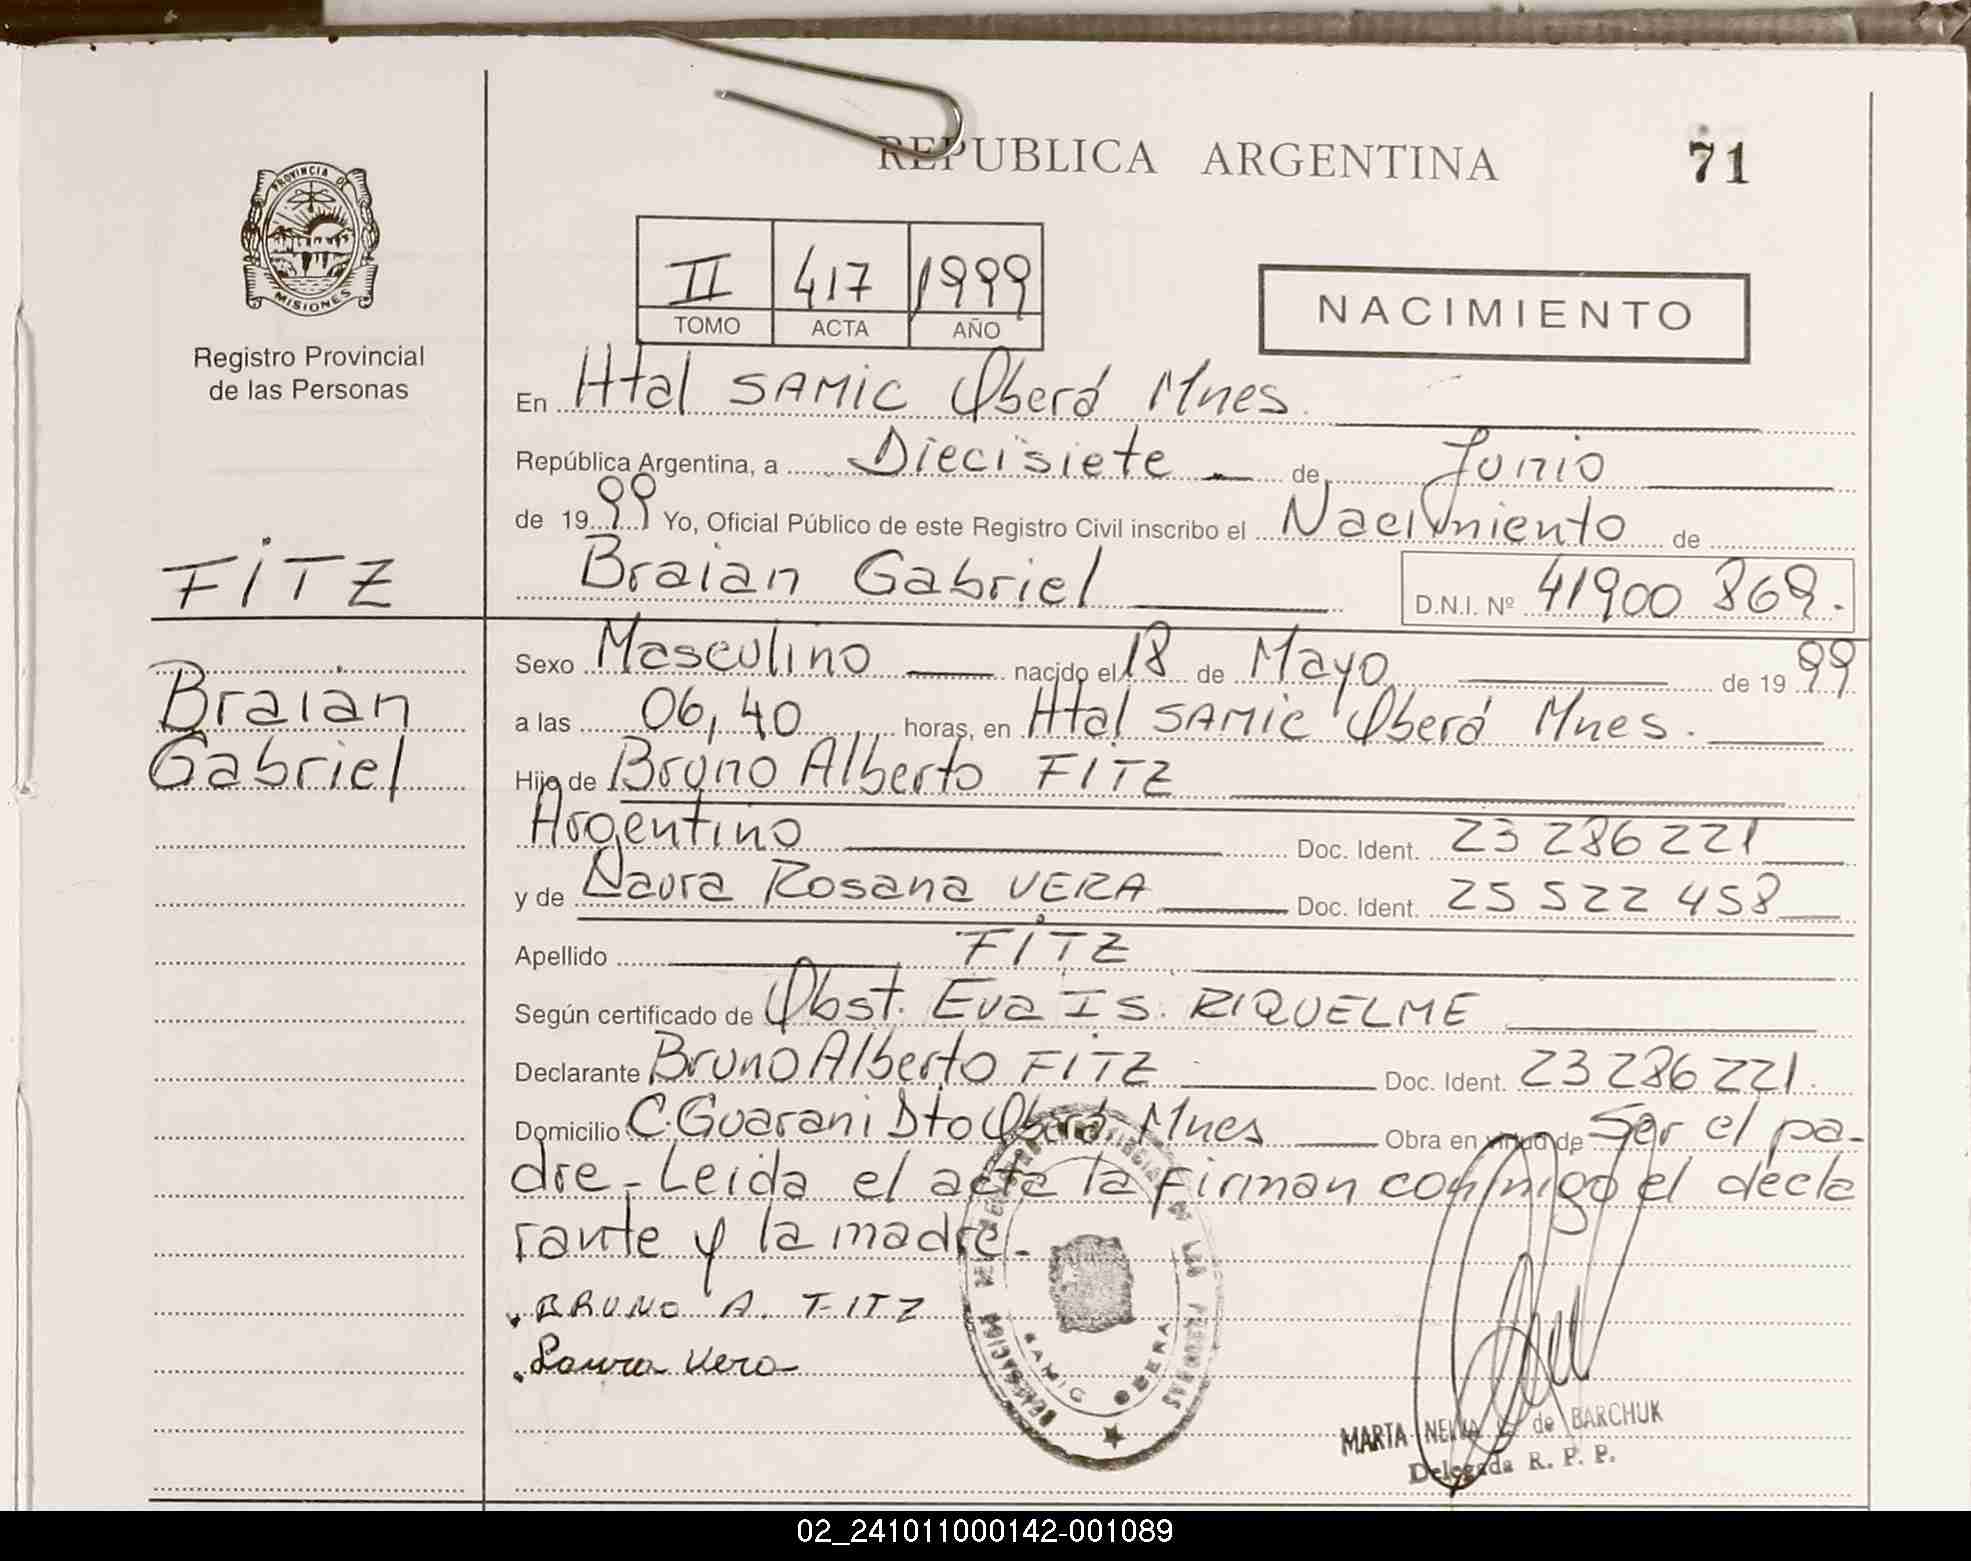 REPUBLICA ARGENTINA
71
PROVINCIA DE
MISIONES
Registro Provincial
de las Personas
II 417 1999
TOMO ACTA AÑO
NACIMIENTO
En Htal SAMIC Oberá Mnes.
República Argentina, a Diecisiete de Junio
de 1999 Yo, Oficial Público de este Registro Civil inscribo el Nacimiento de
Braian Gabriel D.N.I. Nº 41900 869.
FITZ
Braian
Gabriel
Sexo Masculino nacido el 18 de Mayo de 1999
a las 06,40 horas, en Htal SAMIC Oberá Mnes.
Hijo de Bruno Alberto FITZ
Argentino Doc. Ident. 23 286 221
y de Laura Rosana VERA Doc. Ident. 25 522 458
Apellido FITZ
Según certificado de Obst. Eva Is. RIQUELME
Declarante Bruno Alberto FITZ Doc. Ident. 23 286 221.
Domicilio C. Guarani Dto Oberá Mnes Obra en virtud de Ser el pa-
dre - Leida el acta la firman conmigo el decla
rante y la madre.-
BRUNO A. FITZ
Laura Vera
SAMIC OBERA
MARTA de BARCHUK
Delegada R. P. P.
02_241011000142-001089